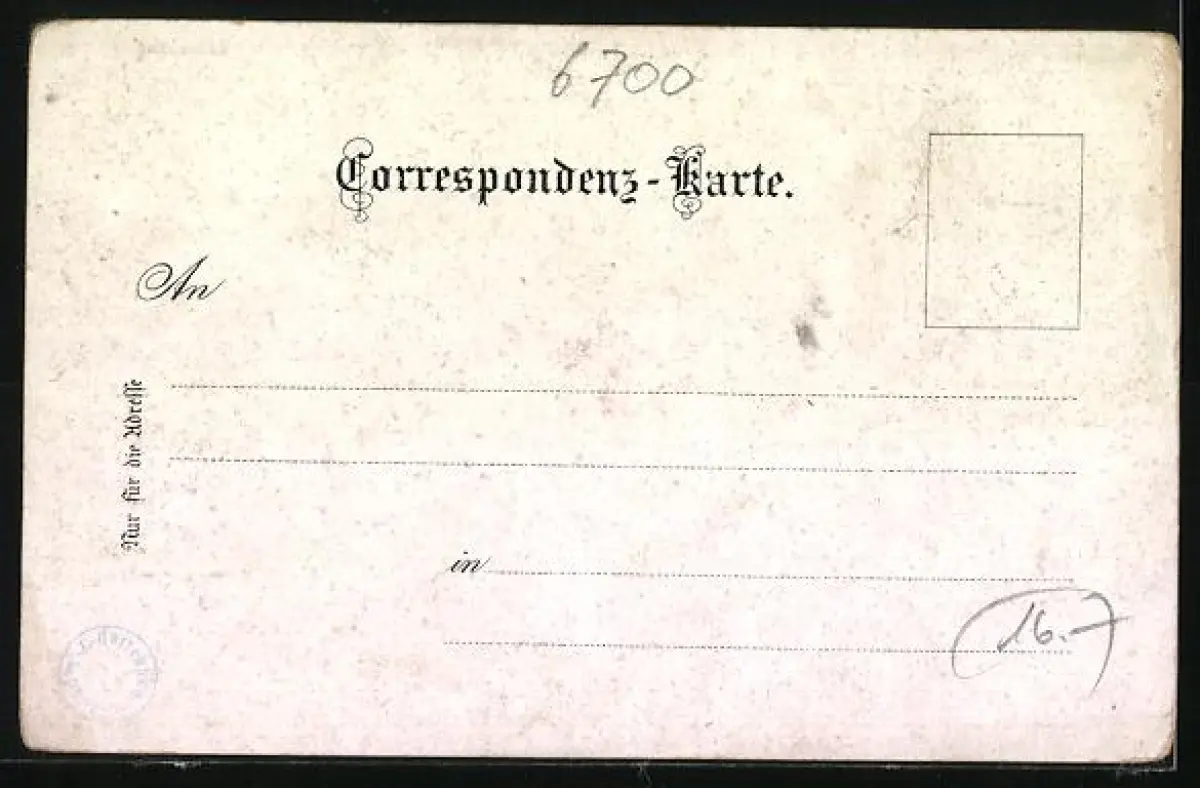 6700
Correspondenz-Karte.
An
Nur für die Adresse
in
16.-